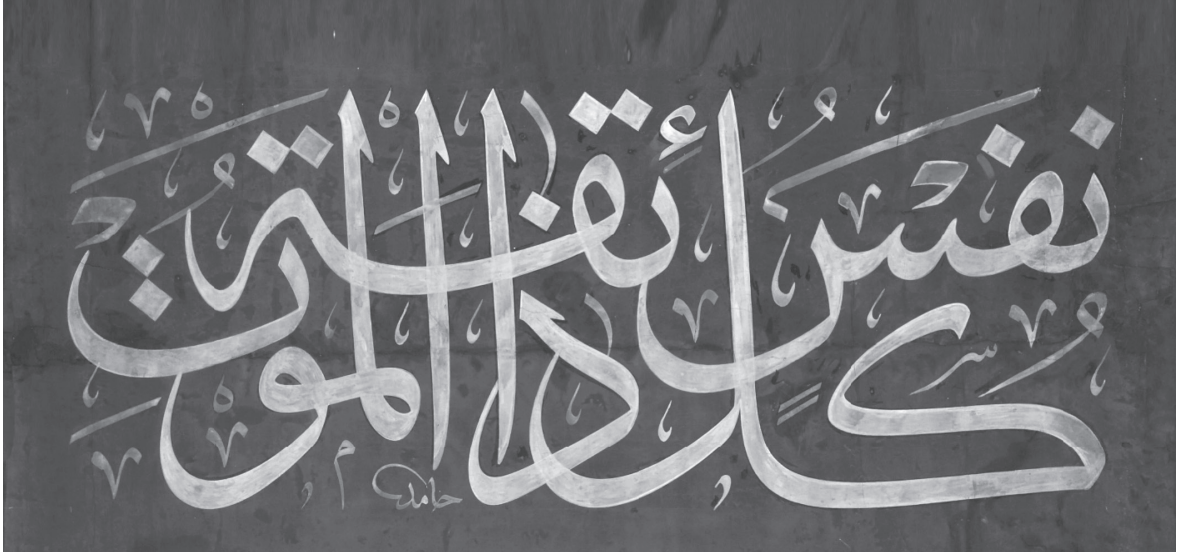 كُلُّ نَفْسٍ ذَائِقَةُ الْمَوْتِ
حامد